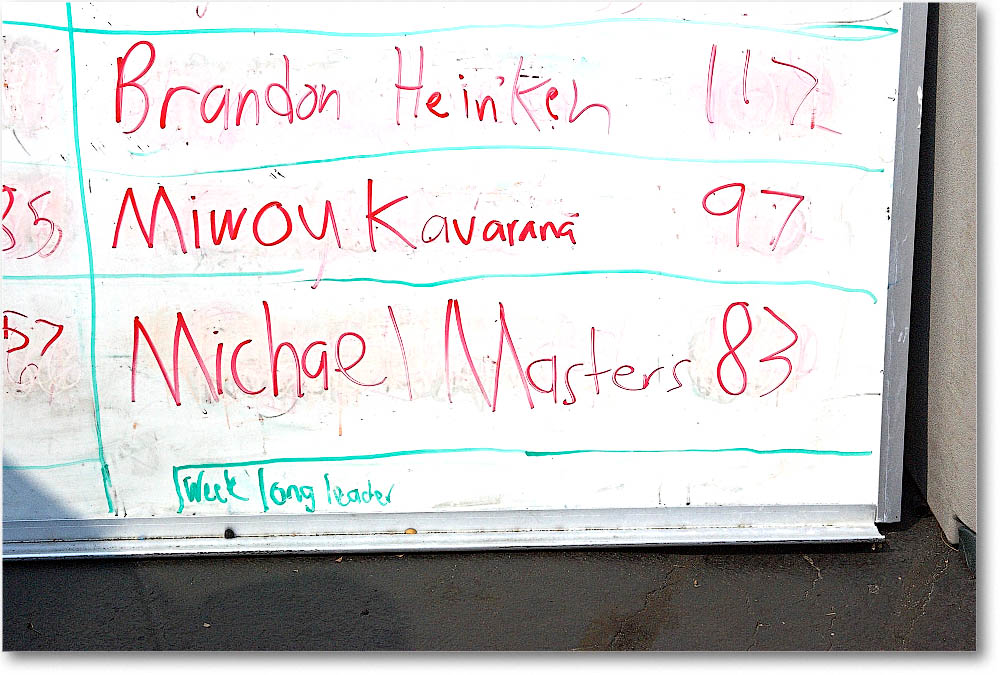 Brandon Heinken 117
85 Miwoy Kavarana 97
57 Michael Masters 83
Week long leader